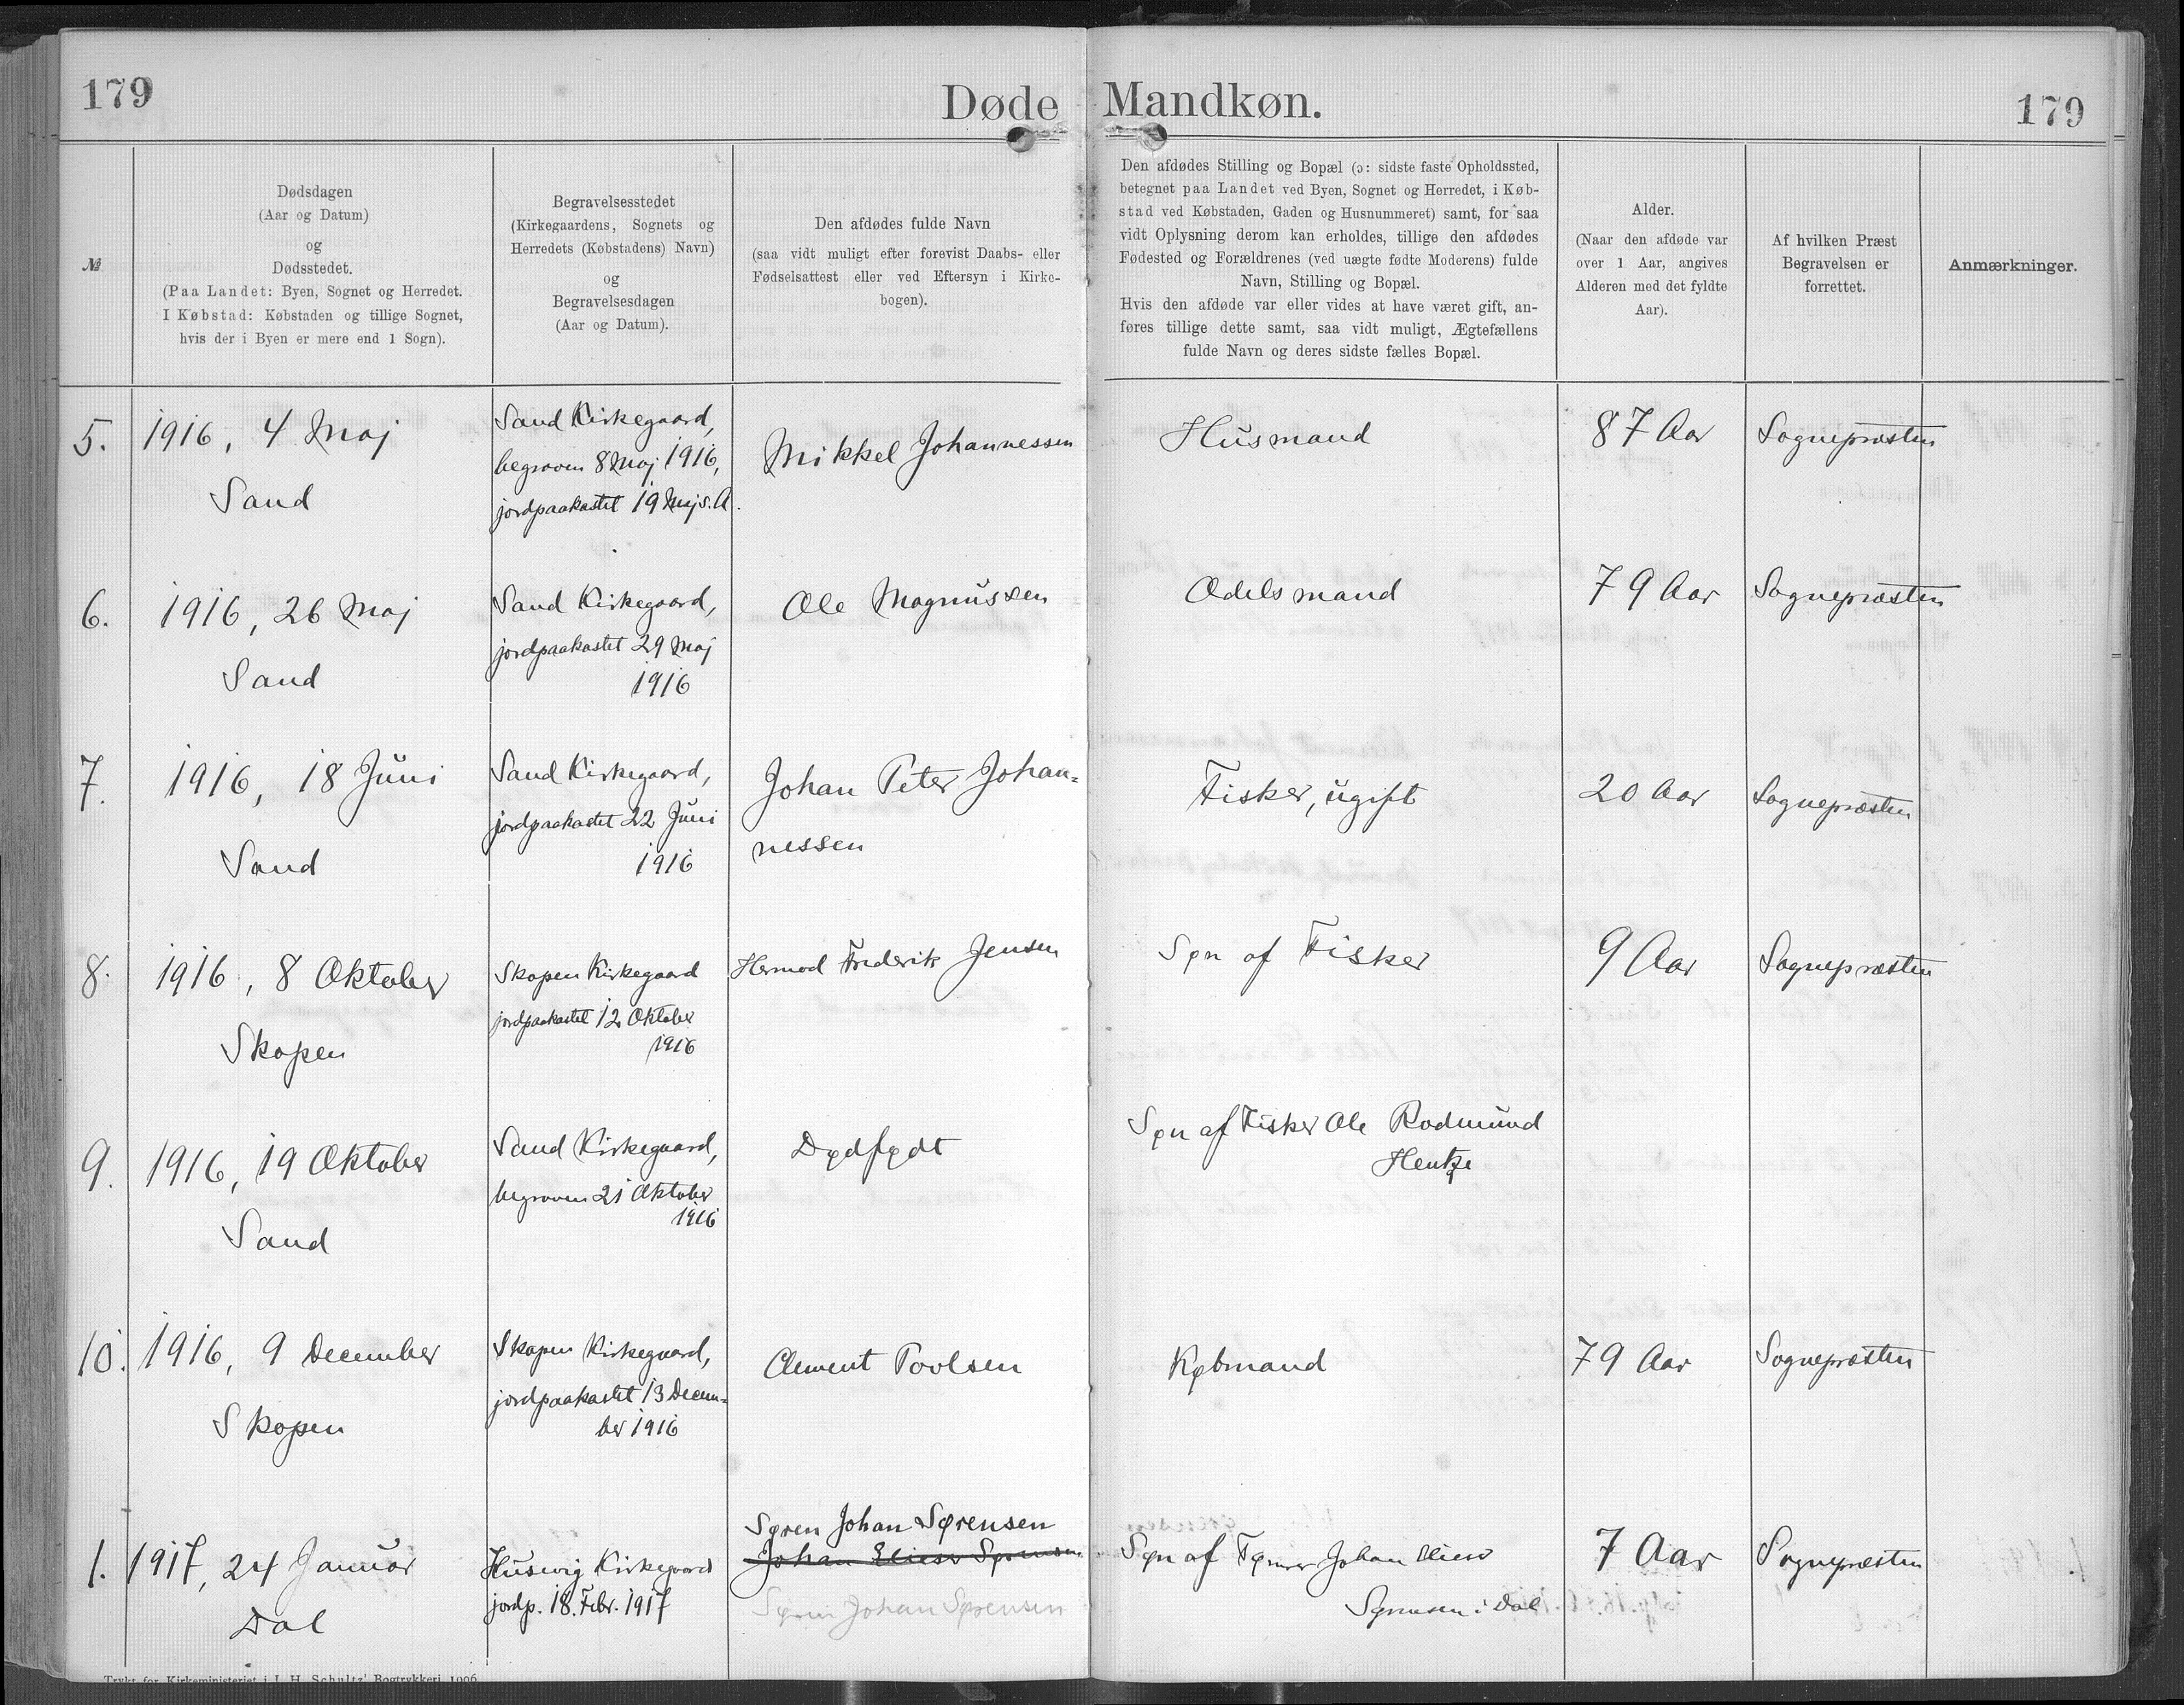 179
Døde Mandkøn.
179
№
Dødsdagen
(Aar og Datum)
og
Dødsstedet.
(Paa Landet: Byen, Sognet og Herredet.
I Købstad: Købstaden og tillige Sognet,
hvis der i Byen er mere end 1 Sogn).
Begravelsesstedet
(Kirkegaardens, Sognets og
Herredets (Købstadens) Navn)
og
Begravelsesdagen
(Aar og Datum).
Den afdødes fulde Navn
(saa vidt muligt efter forevist Daabs- eller
Fødselsattest eller ved Eftersyn i Kirke-
bogen).
Den afdødes Stilling og Bopæl (ɔ: sidste faste Opholdssted,
betegnet paa Landet ved Byen, Sognet og Herredet, i Køb-
stad ved Købstaden, Gaden og Husnummeret) samt, for saa
vidt Oplysning derom kan erholdes, tillige den afdødes
Fødested og Forældrenes (ved uægte fødte Moderens) fulde
Navn, Stilling og Bopæl.
Hvis den afdøde var eller vides at have været gift, an-
føres tillige dette samt, saa vidt muligt, Ægtefællens
fulde Navn og deres sidste fælles Bopæl.
Alder.
(Naar den afdøde var
over 1 Aar, angives
Alderen med det fyldte
Aar).
Af hvilken Præst
Begravelsen er
forrettet.
Anmærkninger.
5.
1916, 4 Maj
Sand
Sand Kirkegaard,
begraven 8 Maj 1916,
jordpaakastet 19 Maj s. A.
Mikkel Johannessen
Husmand
87 Aar
Sognepræsten
6.
1916, 26 Maj
Sand
Sand Kirkegaard,
jordpaakastet 29 Maj
1916
Ole Magnussen
Odelsmand
79 Aar
Sognepræsten
7.
1916, 18 Juni
Sand
Sand Kirkegaard,
jordpaakastet 22 Juni
1916
Johan Peter Johan=
nessen
Fisker, ugift
20 Aar
Sognepræsten
8.
1916, 8 Oktober
Skopen
Skopen Kirkegaard
jordpaakastet 12 Oktober
1916
Hermod Frederik Jensen
Søn af Fisker
9 Aar
Sognepræsten
9.
1916, 19 Oktober
Sand
Sand Kirkegaard,
begraven 21 Oktober
1916
Dødfødt
Søn af Fisker Ole Rodmund
Hentze
10.
1916, 9 December
Skopen
Skopen Kirkegaard,
jordpaakastet 13 Decem=
ber 1916
Clement Poulsen
Købmand
79 Aar
Sognepræsten
1.
1917, 24 Januar
Dal
Husevig Kirkegaard
jordp. 18. Febr. 1917
Søren Johan Sørensen
Johan Elieser Sørensen
Søren Johan Sørensen
Søn af Johan Elieser
Sørensen i Dal
7 Aar
Sognepræsten
Trykt for Kirkeministeriet i J. H. Schultz' Bogtrykkeri 1906